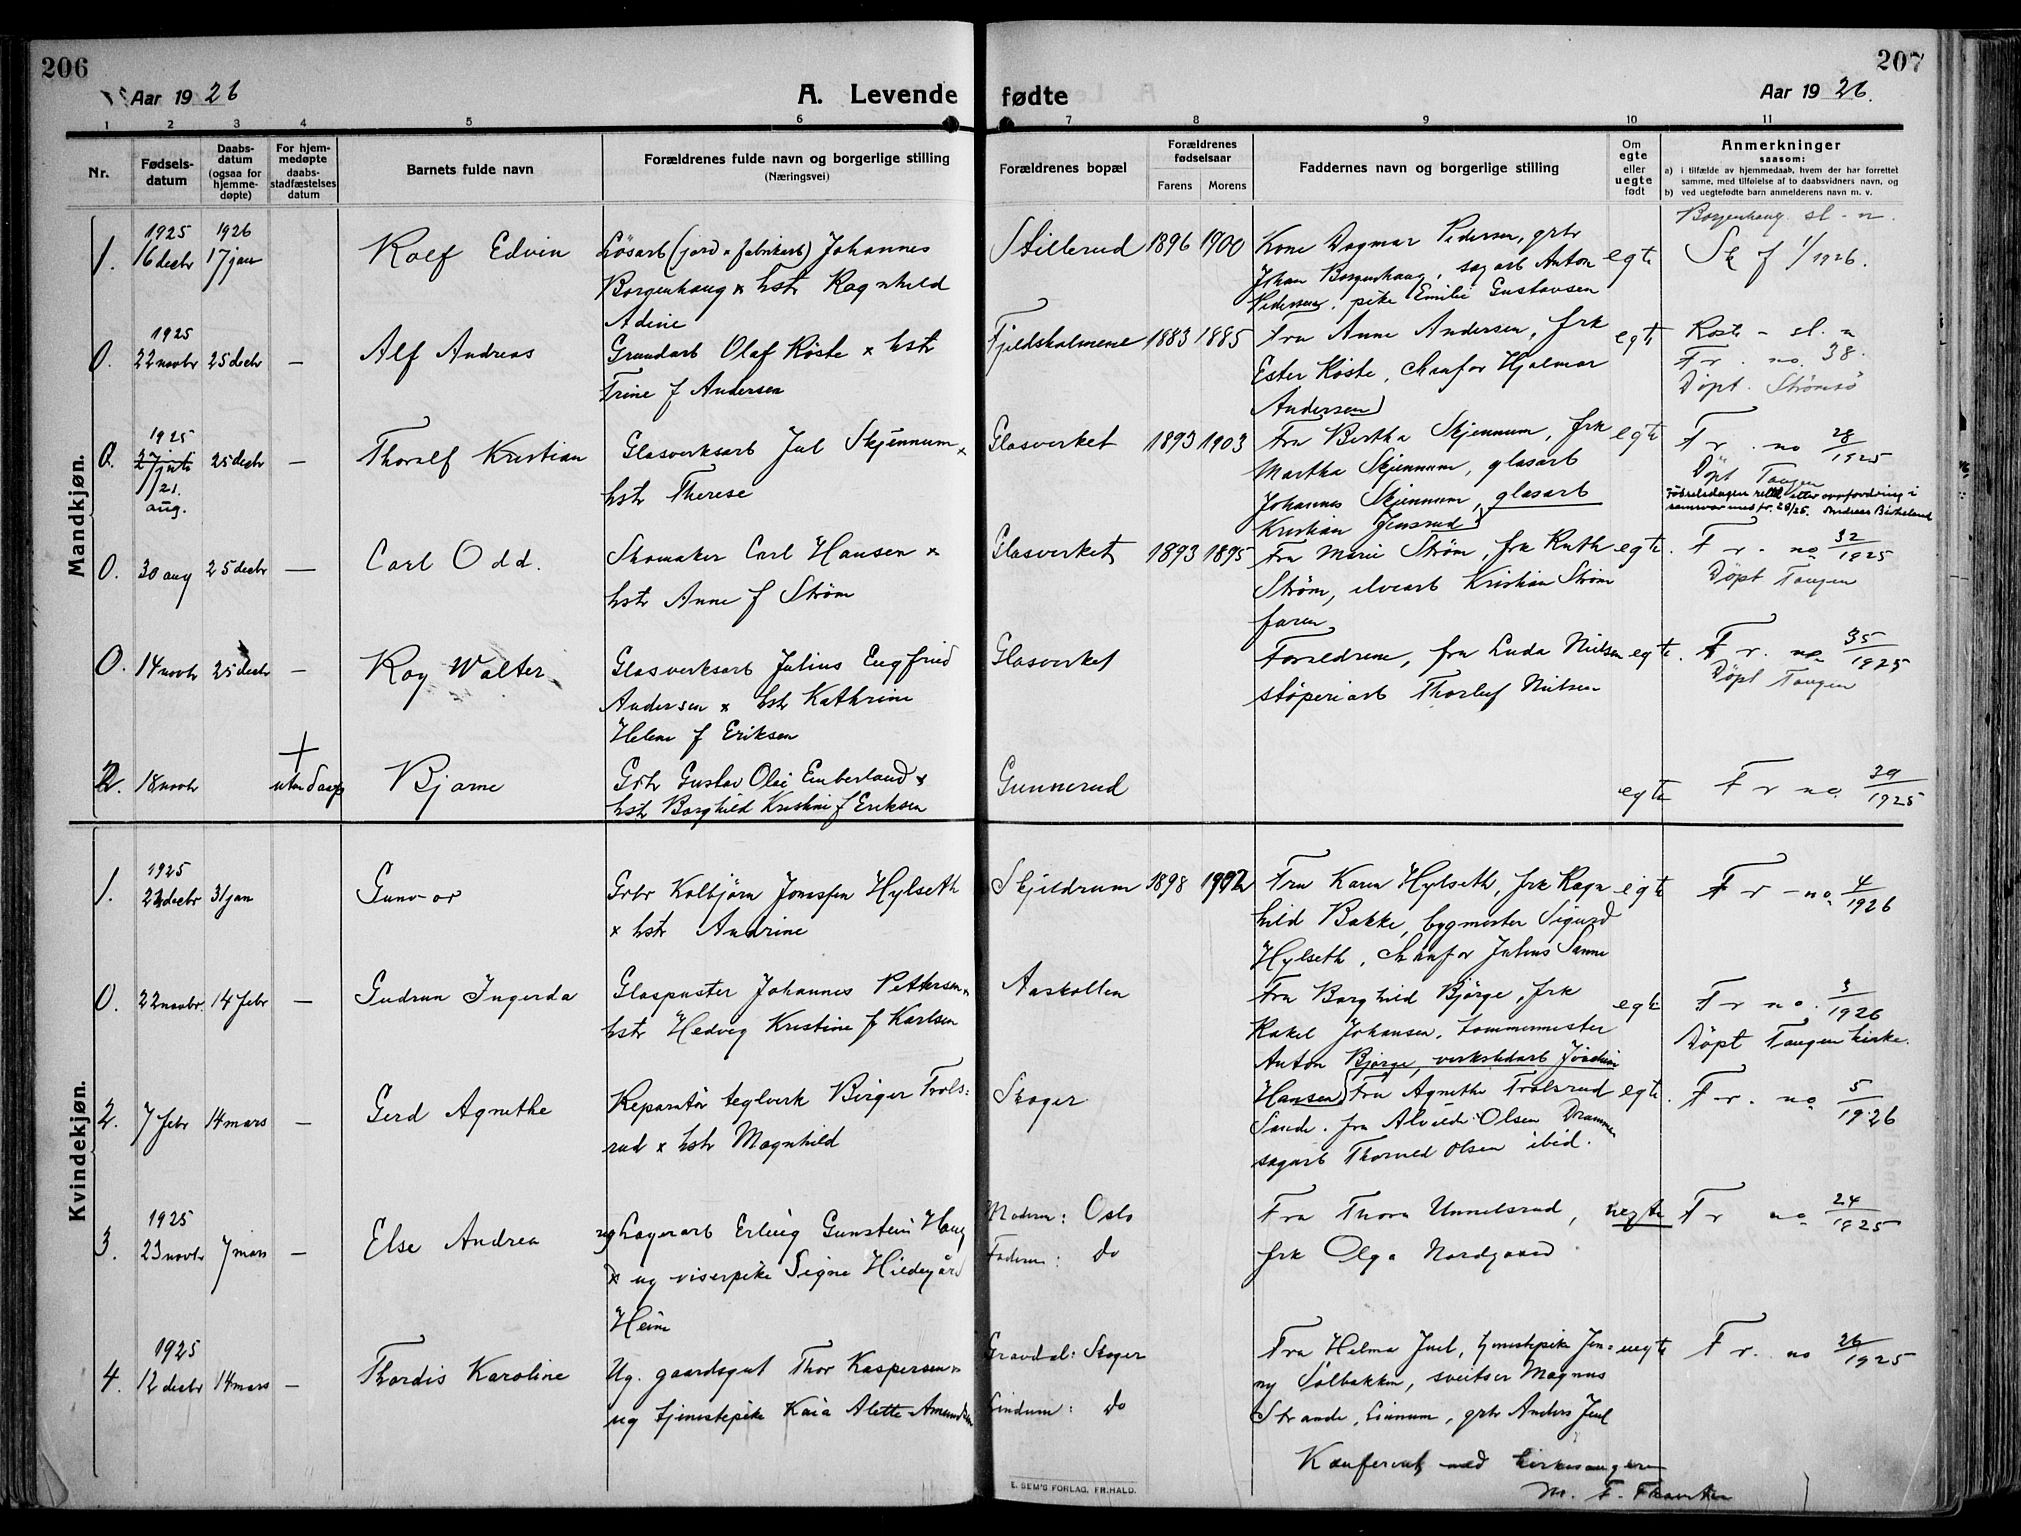 206
Aar 1926
A. Levende
1 2 3 4 5 6
Nr.
Fødsels-
datum
Daabs-
datum
(ogsaa for
hjemme-
døpte)
For hjem-
medøpte
daabs-
stadfæstelses
datum
Barnets fulde navn
Forældrenes fulde navn og borgerlige stilling
(Næringsvei)
Mandkjøn.
1925 1926
1. 16 decbr 17 jan Rolf Edvin Løsarb (jord o fabrikarb) Johannes
Borgenhaug x hstr Ragnhild
Adine
1925
0. 22 novbr 25 decbr — Alf Andreas Grundarb Olaf Röste x hstr
Trine f Andersen
1925
0. 27 juli 25 decbr — Thoralf Kristian Glasverksarb Jul Skjennum x
21. hstr Therese
aug.
0. 30 aug 25 decbr — Carl Odd. Skomaker Carl Hansen x
hstr Anne f Strøm
0. 14 novbr 25 decbr — Roy Walter Glasverksarb Julius Engfried
Andersen x hstr Kathrine
Helene f Eriksen
2. 18 novbr + utendaap Bjarne Gbr Gustav Olai Emberland x
hstr Borghild Kristine f Eriksen
Kvindekjøn.
1925
1. 22 decbr 31 jan Gunvor Grbr Kolbjörn Jonassen Hylseth
x hstr Andrine
0. 22 novbr. 14 febr — Gudrun Ingerda Glaspuster Johannes Pettersen x
hstr Hedvig Kristine f Karlsen
2. 7 febr 14 mars — Gerd Agnethe Reparatör teglverk Birger Trols=
rud x hstr Magnhild
1925
3. 23 novbr 7 mars — Else Andrea ug Lagerarb Erling Gunstein Haug
x ug viserpike Signe Hildegård
Heim
1925
4. 12 decbr 14 mars — Thordis Karoline Ug. gaardsgut Thor Kaspersen x
ug tjenestepike Kaia Alette Amundsen
207
fødte
Aar 1926.
7 8 9 10 11
Forældrenes bopæl
Forældrenes
fødselsaar
Farens Morens
Faddernes navn og borgerlige stilling
Om
egte
eller
uegte
født
Anmerkninger
saasom:
a) i tilfælde av hjemmedaab, hvem der har forrettet
samme, med tilføielse af to daabsvidners navn, og
b) ved uegtefødte barn anmelderens navn m. v.
Stillerud 1896 1900 Kone Dagmar Pedersen, grbr egte Borgenhaug sl - n.
Johan Borgenhaug, sagarb Anton Sk f 1/1926.
Pedersen, pike Emilie Gustavsen
Fjeldskolmene 1883 1885 Fru Anne Andersen, frk egte Röste - sl. n
Ester Röste, chaufør Hjalmar Fr. no. 38.
Andersen Döpt. Strömsö
Glasverket 1893 1903 Fru Bertha Skjennum, frk egte Fr. no 28/1925
Martha Skjennum, glasarb Döpt Tangen
Johannes Skjennum, glasarb Fødselsdagen rettet etter anfordring i
Kristian Jensrud samsvar med fr. 28/25. Andreas Birkeland
Glasverket 1893 1895 Fru Marie Strøm, frk Ruth egte. Fr. no 32/1925
Strøm, elvearb Kristian Strøm Döpt Tangen
faren
Glasverket Forældrene, fru Luda Nielsen egte. Fr. no 35/1925
støperiarb Thorleif Nielsen Döpt Tangen
Gunnerud egte Fr no. 39/1925
Skjeldrum 1898 1902 Fru Karen Hylseth, frk Ragn egte Fr - no. 4/1926
hild Bakke, bygmester Sigurd
Hylseth, Chaufør Julius Sanne
Aaskollen Fru Borghild Björge, frk egte Fr no. 3/1926
Rakel Johansen, tommermester Döpt Tangen kirke.
Anton Björge, verkstedarb Joachim
Skoger Hansen Fru Agnethe Trolsrud egte. Fr. no 5/1926
Sande. fru Alvilde Olsen Drammen
sagarb Thorvald Olsen ibid.
Moderen: Oslo Fru Thora Unnelsrud, uegte Fr no 24/1925
Faderen: do frk Olga Nordgaard
Gravdal: Skoger Fru Helma Juel, tjenestepike Jen= uegte Fr. no 26/1925
Lindum: do ny Solbakken, sveitser Magnus
Strande, Linnum, grbr Anders Juel
Konferert med kirkesangeren
M. F.
E. SEM'S FORLAG, FR.HALD.